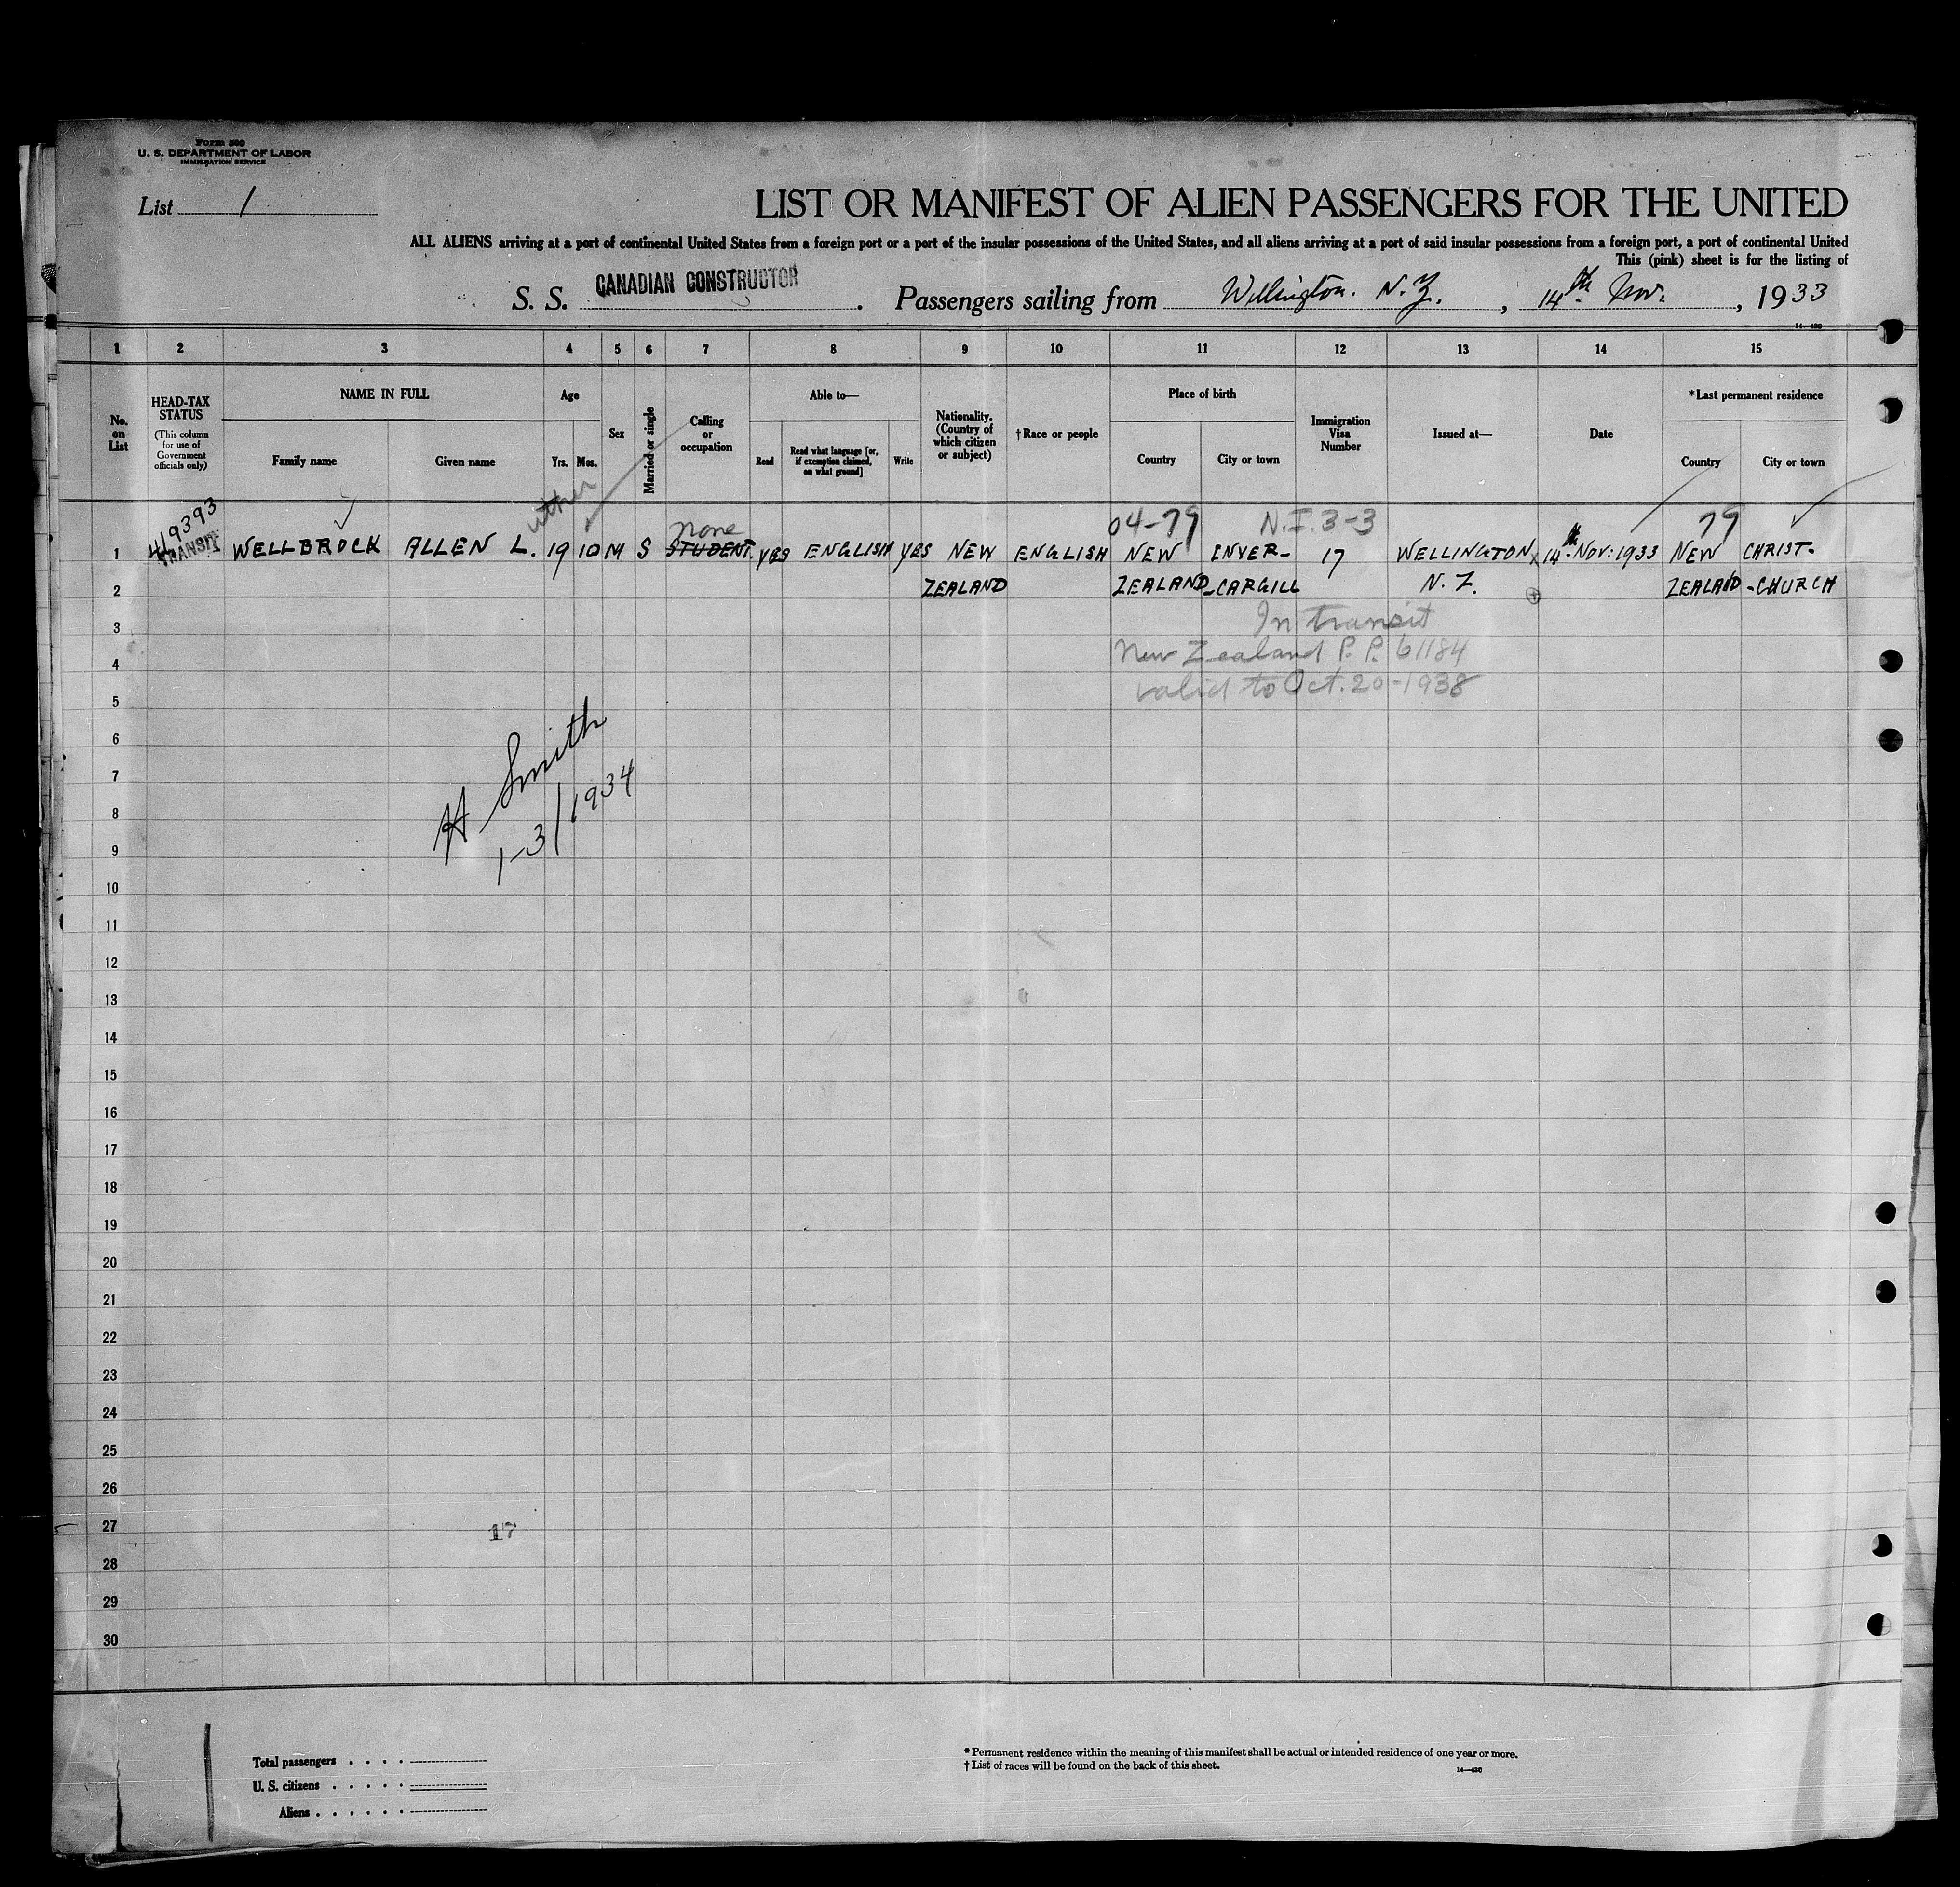 Form 500
U. S. DEPARTMENT OF LABOR
IMMIGRATION SERVICE
List 1
LIST OR MANIFEST OF ALIEN PASSENGERS FOR THE UNITED
ALL ALIENS arriving at a port of continental United States from a foreign port or a port of the insular possessions of the United States, and all aliens arriving at a port of said insular possessions from a foreign port, a port of continental United
This (pink) sheet is for the listing of
S. S. CANADIAN CONSTRUCTOR. Passengers sailing from Wellington. N.Z., 14th Nov., 1933
14—430
1 2 3 4 5 6 7 8 9 10 11 12 13 14 15
No. on List
HEAD-TAX STATUS
(This column for use of Government officials only)
NAME IN FULL
Family name
Given name
Age
Yrs. Mos.
Sex
Married or single
Calling or occupation
Able to—
Read
Read what language [or, if exemption claimed, on what ground]
Write
Nationality. (Country of which citizen or subject)
†Race or people
Place of birth
Country
City or town
Immigration Visa Number
Issued at—
Date
*Last permanent residence
Country
City or town
419393 none 04-79 N.I. 3-3 79
1 TRANSIT WELLBROCK ALLEN L. 19 10 M S STUDENT. YES ENGLISH YES NEW ENGLISH NEW INVER- 17 WELLINGTON 14th NOV: 1933 NEW CHRIST-
2 ZEALAND ZEALAND -CARGILL N. Z. ZEALAND -CHURCH
3 In transit
4 New Zealand P. P. 61184
5 valid to Oct. 20-1938
6
7
8
9
H Smith
1-3/1934
10
11
12
13
14
15
16
17
18
19
20
21
22
23
24
25
26
27
17
28
29
30
Total passengers
U. S. citizens
Aliens
* Permanent residence within the meaning of this manifest shall be actual or intended residence of one year or more.
† List of races will be found on the back of this sheet.
14—430